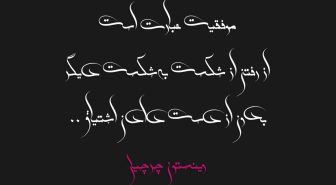 موفقیت عبارت است
از رفتن از شکست به شکست دیگر
بدون از دست دادن اشتیاق ..
وینستون چرچیل